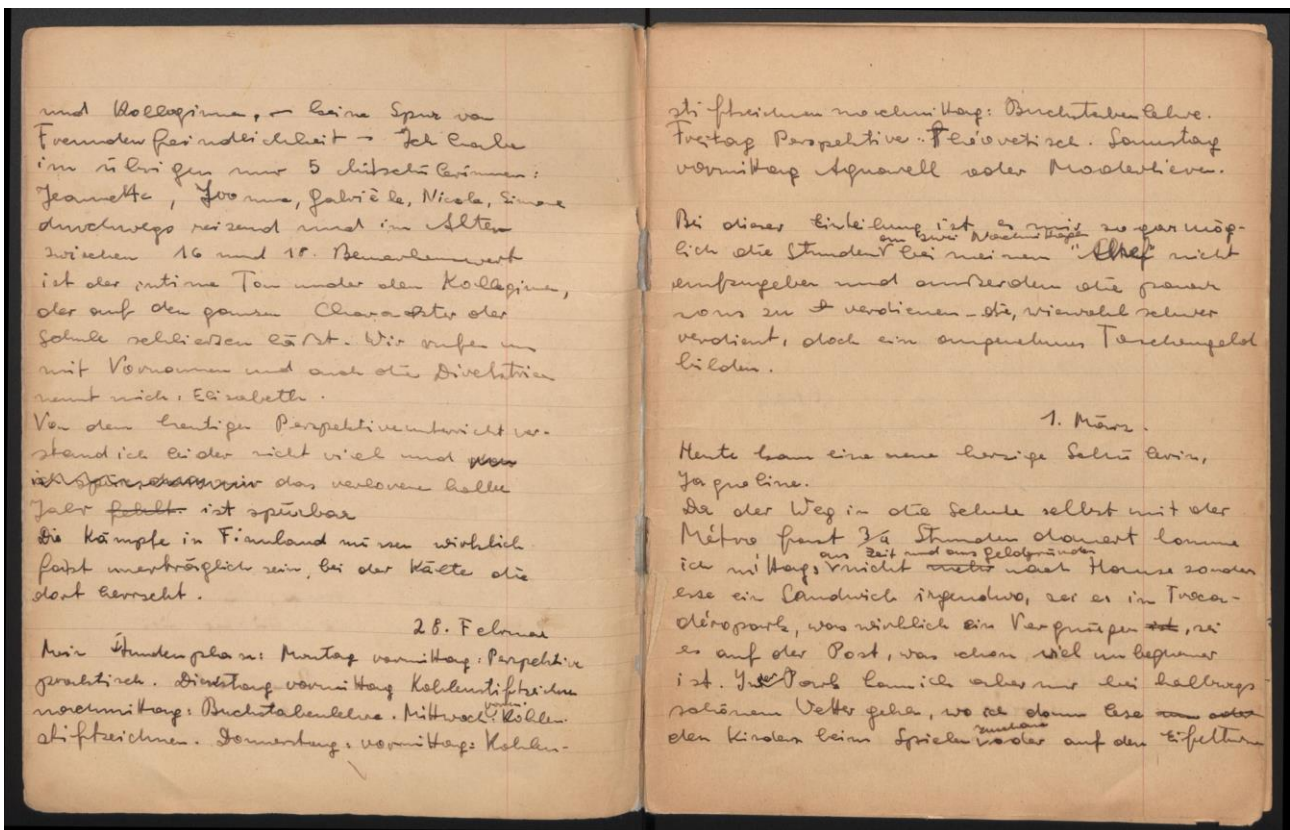 und Kolleginnen, – keine Spur von
Fremdenfeindlichkeit – Ich habe
im übrigen nur 5 Mitschülerinnen:
Jeanette, Yvonne, Gabrièle, Nicole, Simone
durchwegs reizend und im Alter
zwischen 16 und 18. Bemerkenswert
ist der intime Ton unter den Kolleginnen,
der auf den ganzen Charakter der
Schule schließen läßt. Wir rufen uns
mit Vornamen und auch die Direktrice
nennt mich: Elisabeth.
Von dem heutigen Perspektiveunterricht ver-
stand ich leider nicht viel und
das verlorene halbe
Jahr fehlt. ist spürbar
Die Kämpfe in Finnland müssen wirklich
fast unerträglich sein, bei der Kälte die
dort herrscht.
28. Februar
Mein Stundenplan: Montag vormittag: Perspektive
praktisch. Dienstag vormittag Kohlenstiftzeichnen
nachmittag: Buchstabenlehre. Mittwoch: vorm. Kohlen-
stiftzeichnen. Donnerstag: vormittag: Kohlen-
stiftzeichnen nachmittag: Buchstabenlehre.
Freitag Perspektive. Théoretisch. Samstag
vormittag Aquarell oder Modellieren.
Bei dieser Einteilung ist es mir sogar mög-
lich die Stunden an zwei Nachmittagen bei meinem "Chef" nicht
aufzugeben und außerdem die paar
sous zu verdienen – die, wiewohl schwer
verdient, doch ein angenehmes Taschengeld
bilden.
1. März.
Heute kam eine neue herzige Schülerin,
Jaqueline.
Da der Weg in die Schule selbst mit der
Métro fast 3/4 Stunden dauert komme
ich mittags aus Zeit und aus Geldgründen nicht mehr nach Hause sondern
esse ein Sandwich irgendwo, sei es im Troca-
déropark, was wirklich ein Vergnügen ist, sei
es auf der Post, was schon viel unbequemer
ist. In den Park kann ich aber nur bei halbwegs
schönem Wetter gehen, wo ich dann lese
den Kindern beim Spielen zuschaue oder auf den Eifelturm